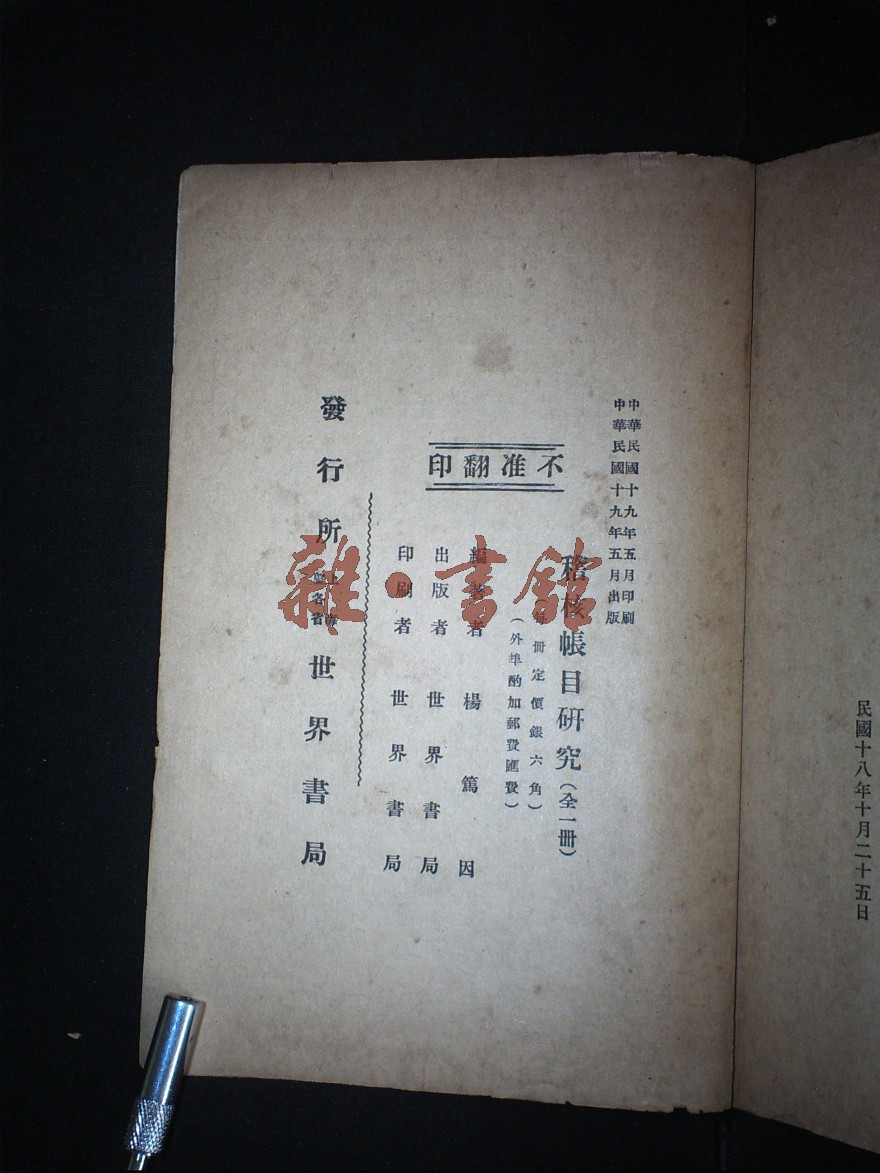 民國十八年十月二十五日
中華民國十九年五月印刷
中華民國十九年五月出版
稽核帳目研究(全一冊)
每冊定價銀六角)
(外埠酌加郵費匯費)
不准翻印
編著者 楊篤因
出版者 世界書局
印刷者 世界書局
發行所 上海 各省 世界書局
雜·書館